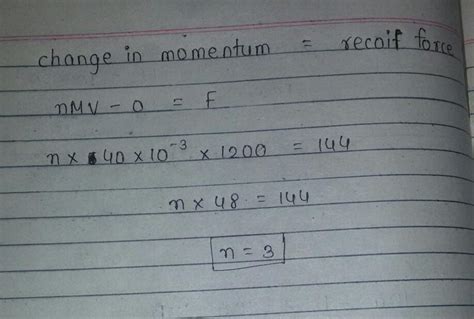 change in momentum = recoif force
nMV - 0 = F
n × 40 × 10⁻³ × 1200 = 144
n × 48 = 144
n = 3